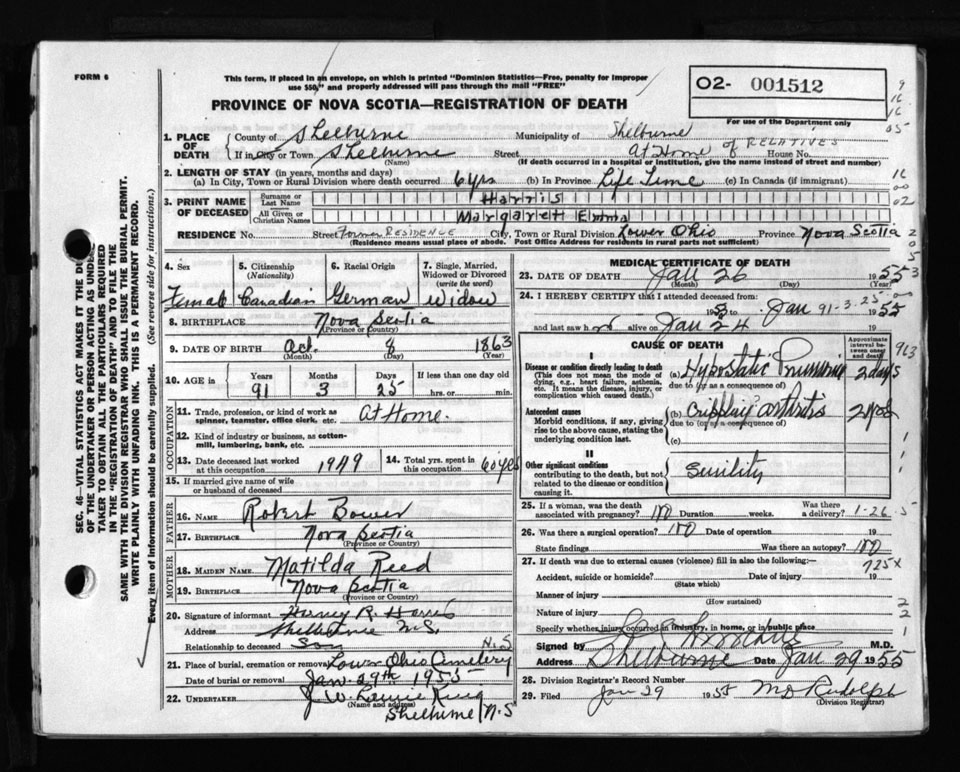 FORM 6
This form, if placed in an envelope, on which is printed "Dominion Statistics—Free, penalty for improper
use $50," and properly addressed will pass through the mail "FREE"
O2- 001512
For use of the Department only
PROVINCE OF NOVA SCOTIA—REGISTRATION OF DEATH
1. PLACE OF DEATH County of Shelburne Municipality of Shelburne
If in City or Town Shelburne Street At Home OF RELATIVES House No.
(Name) (If death occurred in a hospital or institution, give the name instead of street and number)
2. LENGTH OF STAY (in years, months and days)
(a) In City, Town or Rural Division where death occurred 6 yrs (b) In Province Life Time (c) In Canada (if immigrant)
3. PRINT NAME OF DECEASED Surname or Last Name Harris
All Given or Christian Names Margarett Emma
RESIDENCE No. Street Former RESIDENCE City, Town or Rural Division Lower Ohio Province Nova Scotia
(Residence means usual place of abode. Post Office Address for residents in rural parts not sufficient)
4. Sex 5. Citizenship (Nationality) 6. Racial Origin 7. Single, Married, Widowed or Divorced (write the word)
Female Canadian German Widow
8. BIRTHPLACE Nova Scotia
(Province or Country)
9. DATE OF BIRTH Oct. 8 1863
(Month) (Day) (Year)
10. AGE in Years Months Days If less than one day old
91 3 25 hrs. or min.
OCCUPATION
11. Trade, profession, or kind of work as spinner, teamster, office clerk, etc. At Home.
12. Kind of industry or business, as cotton-mill, lumbering, bank, etc.
13. Date deceased last worked at this occupation 1949 14. Total yrs. spent in this occupation 60 yrs
15. If married give name of wife or husband of deceased
FATHER
16. NAME Robert Bower
17. BIRTHPLACE Nova Scotia
(Province or Country)
MOTHER
18. MAIDEN NAME Matilda Reed
19. BIRTHPLACE Nova Scotia
(Province or Country)
20. Signature of informant R. Harris
Address Shelburne N.S.
Relationship to deceased Son N.S
21. Place of burial, cremation or removal Lower Ohio Cemetery
Date of burial or removal Jan. 29th 1955
22. UNDERTAKER J. W.
(Name and address)
Shelburne N.S
MEDICAL CERTIFICATE OF DEATH
23. DATE OF DEATH Jan 26 1955
(Month) (Day) (Year)
24. I HEREBY CERTIFY that I attended deceased from:
195 to Jan 91-3-25 1955
and last saw h alive on Jan 24 19
CAUSE OF DEATH
Approximate interval between onset and death
I
Disease or condition directly leading to death (a) Hypostatic 2 days
(This does not mean the mode of dying, e.g., heart failure, asthenia, etc. It means the disease, injury, or complication which caused death.)
due to (or as a consequence of)
Antecedent causes (b) arthritis
Morbid conditions, if any, giving rise to the above cause, stating the underlying condition last.
due to (or as a consequence of)
(c)
II
Other significant conditions Senility
contributing to the death, but not related to the disease or condition causing it.
25. If a woman, was the death associated with pregnancy? no Duration weeks. Was there a delivery? 1-26-5
26. Was there a surgical operation? no 19
State findings Was there an autopsy? no
27. If death was due to external causes (violence) fill in also the following:-
725x
Accident, suicide or homicide? Date of injury 19
(State which)
Manner of injury
(How sustained)
Nature of injury
Specify whether injury occurred in industry, in home, or in public place
Signed by M.D.
Address Shelburne Date Jan 29 1955
28. Division Registrar's Record Number
29. Filed Jan 29 1955 Rudolph
(Division Registrar)
SEC. 46—VITAL STATISTICS ACT MAKES IT THE
OF THE UNDERTAKER OR PERSON ACTING AS
TAKER TO OBTAIN ALL THE PARTICULARS REQUIRED
IN THE "REGISTRATION OF DEATH" AND TO FILE THE
SAME WITH THE DIVISION REGISTRAR WHO SHALL ISSUE THE BURIAL PERMIT.
WRITE PLAINLY WITH UNFADING INK. THIS IS A PERMANENT RECORD.
Every item of Information should be carefully supplied. (See reverse side for instructions.)